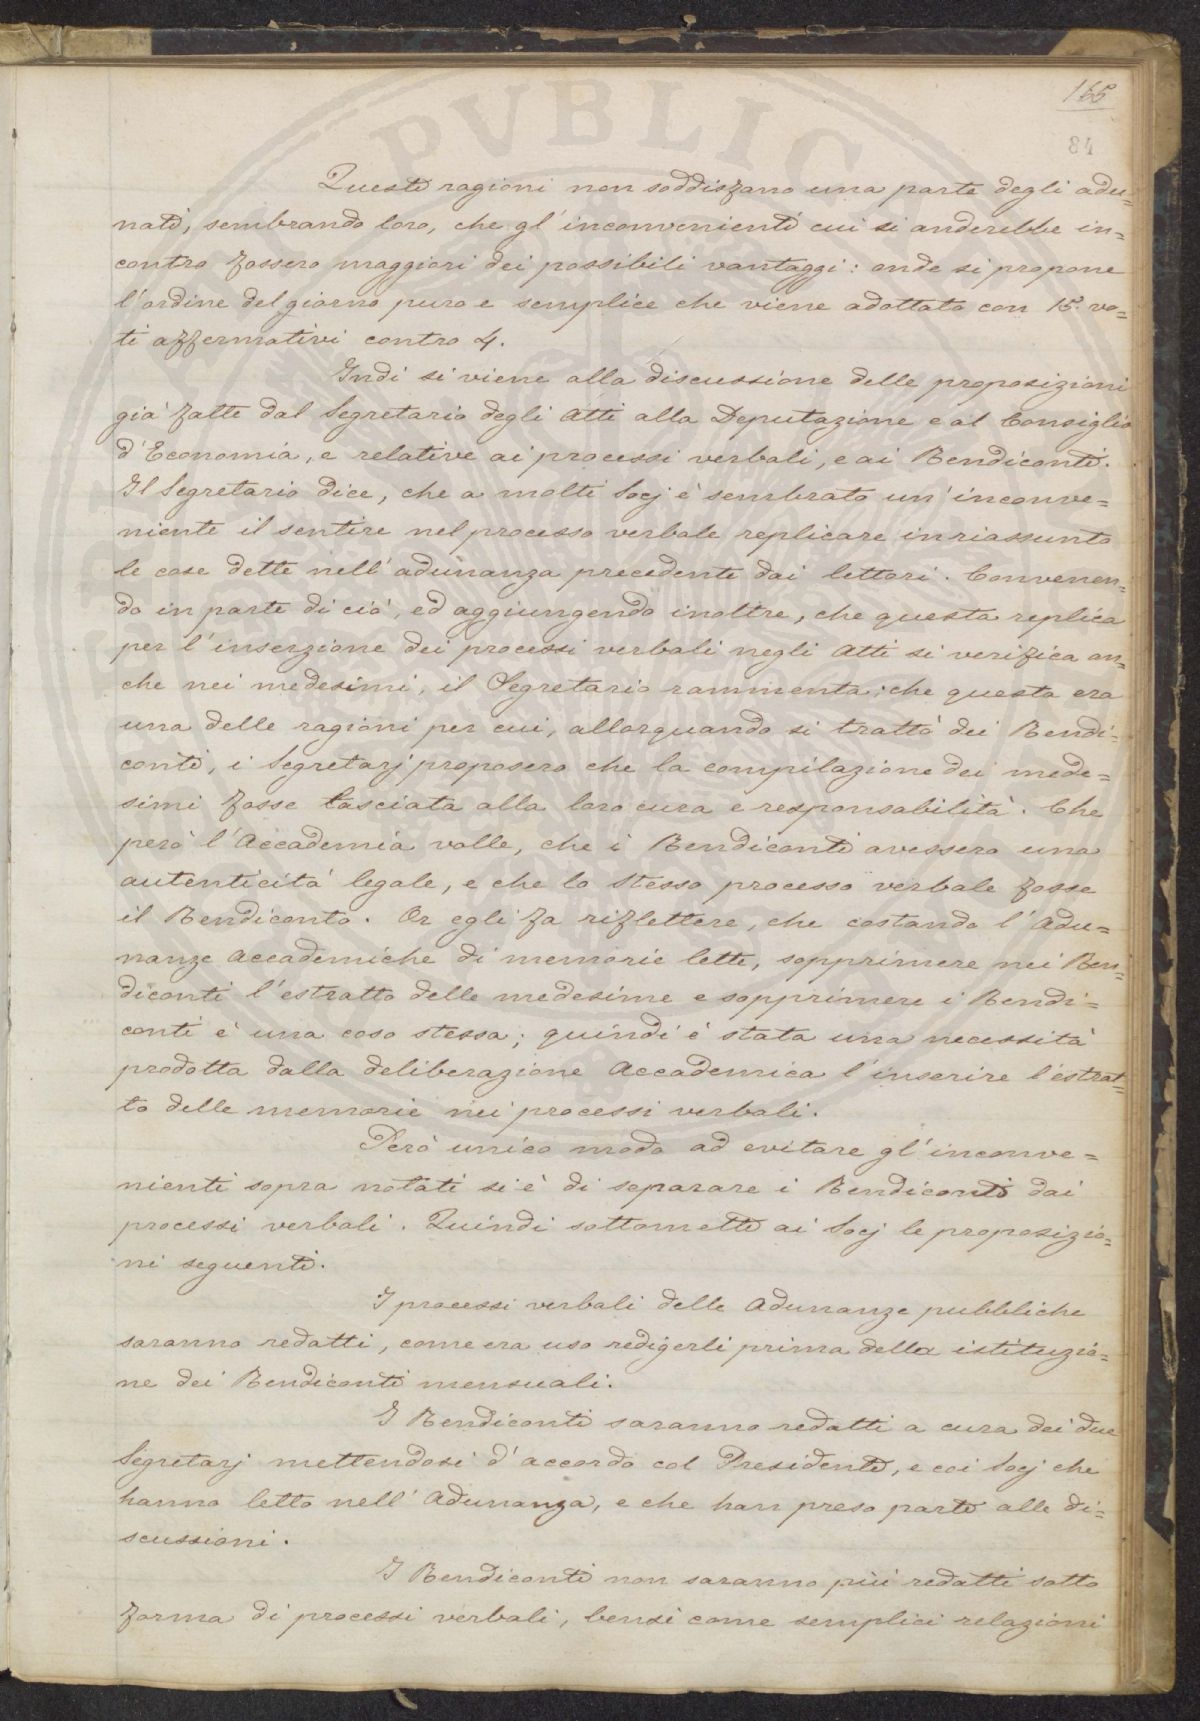 165
84
Queste ragioni non soddisfano una parte degli adu=
nati, sembrando loro, che gl'inconvenienti cui si anderebbe in=
contro fossero maggiori dei possibili vantaggi: onde si propone
l'ordine del giorno puro e semplice che viene adottato con 15 vo=
ti affermativi contro 4.
Indi si viene alla discussione delle proposizioni
già fatte dal Segretario degli Atti alla Deputazione e al Consiglio
d'Economia, e relative ai processi verbali, e ai Rendiconti.
Il Segretario dice, che a molti Socj è sembrato un'inconve=
niente il sentire nel processo verbale replicare in riassunto
le cose dette nell'adunanza precedente dai lettori. Convenen=
do in parte di ciò, ed aggiungendo inoltre, che questa replica
per l'inserzione dei processi verbali negli Atti si verifica an=
che nei medesimi, il Segretario rammenta; che questa era
una delle ragioni per cui, allorquando si trattò dei Rendi=
conti, i Segretarj proposero che la compilazione dei mede=
simi fosse lasciata alla loro cura e responsabilità. Che
però l'Accademia volle, che i Rendiconti avessero una
autenticità legale, e che lo stesso processo verbale fosse
il Rendiconto. Or egli fa riflettere, che costando l'Adu=
nanze Accademiche di memorie lette, sopprimere nei Ren=
diconti l'estratto delle medesime e sopprimere i Rendi=
conti è una cosa stessa; quindi è stata una necessità
prodotta dalla deliberazione Accademica l'inserire l'estrat=
to delle memorie nei processi verbali.
Però unico modo ad evitare gl'inconve=
nienti sopra notati si è di separare i Rendiconti dai
processi verbali. Quindi sottomette ai Socj le proposizio=
ni seguenti.
I processi verbali delle Adunanze pubbliche
saranno redatti, come era uso redigerli prima della istituzio=
ne dei Rendiconti mensuali.
I Rendiconti saranno redatti a cura dei due
Segretarj mettendosi d'accordo col Presidente, e coi Socj che
hanno letto nell'Adunanza, e che han preso parte alle di=
scussioni.
I Rendiconti non saranno più redatti sotto
forma di processi verbali, bensì come semplici relazioni